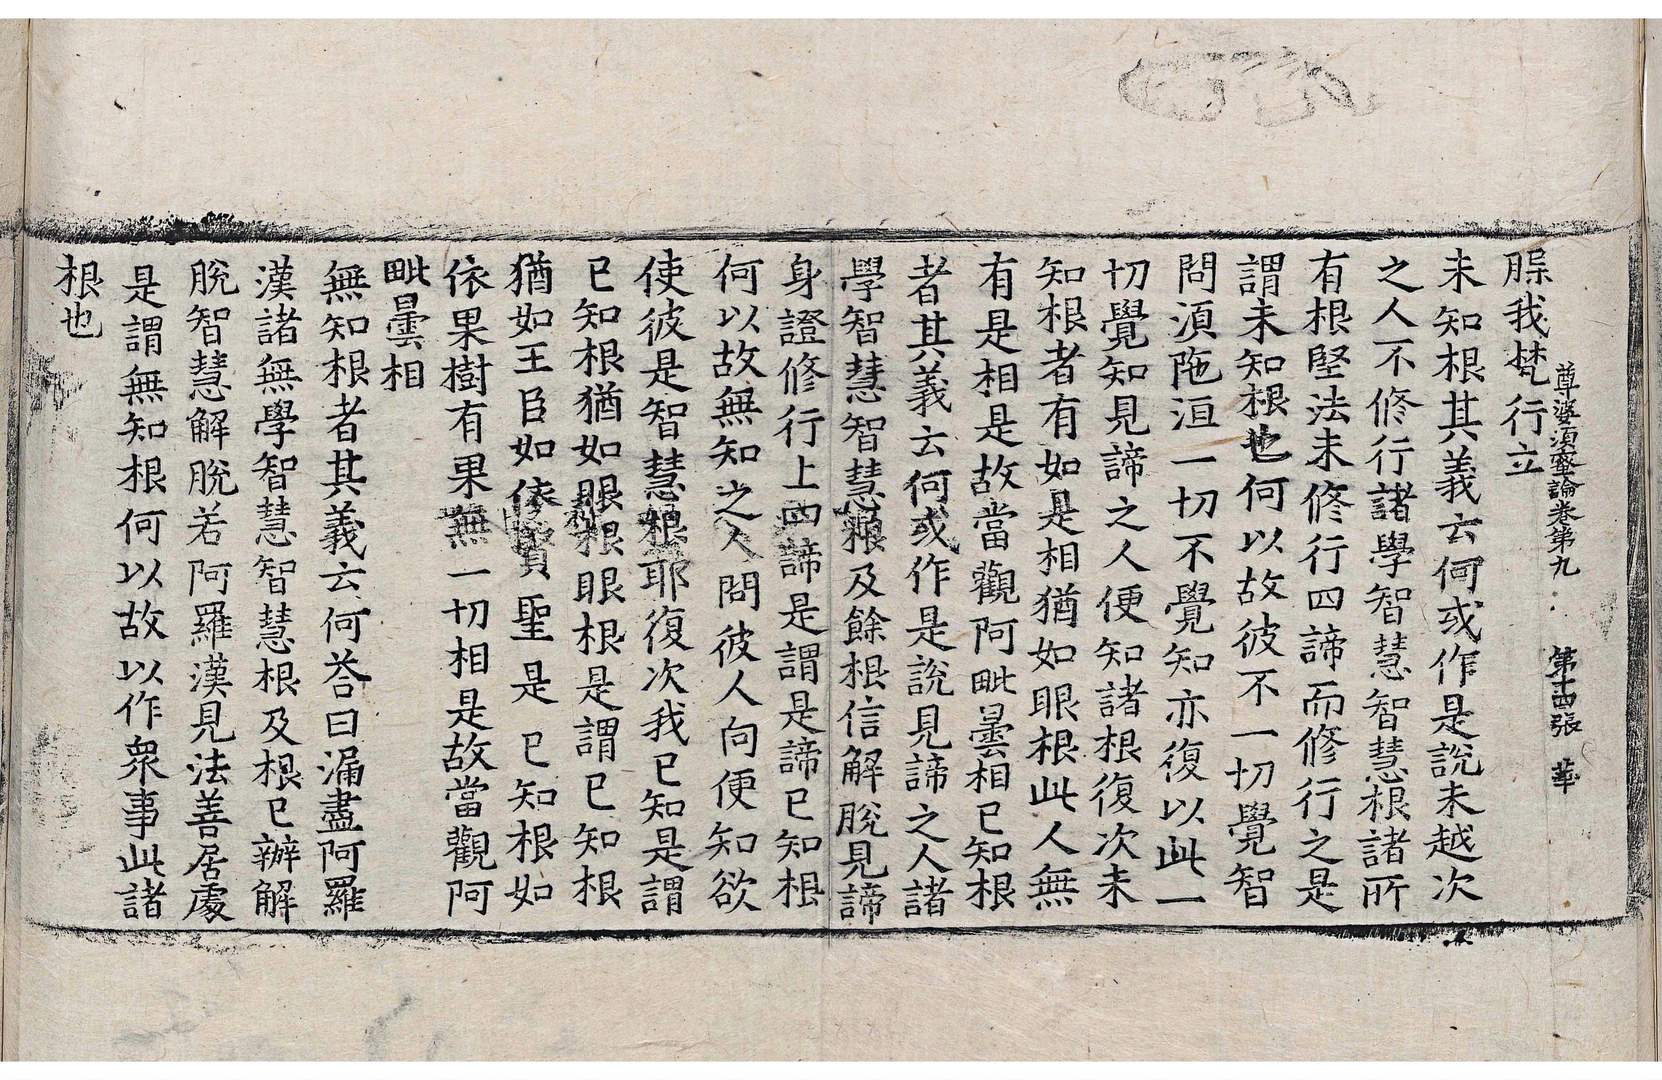 尊婆湏蜜論卷第九 第十四張 華
我梵行立
未知根其義云何或作是說未越次
之人不修行諸學智慧智慧根諸所
有根堅法未修行四諦而修行之是
謂未知根也何以故彼不一切覺智
問湏陁洹一切不覺知亦復以此一
切覺知見諦之人便知諸根復次未
知根者有如是相猶如眼根此人無
有是相是故當觀阿毗曇相已知根
者其義云何或作是說見諦之人諸
學智慧智慧根及餘根信解脫見諦
身證修行上四諦是謂是諦已知根
何以故無知之人問彼人向便知欲
使彼是智慧根耶復次我已知是謂
已知根猶如眼根眼根是謂已知根
猶如王臣如依賢聖是已知根如
依果樹有果無一切相是故當觀阿
毗曇相
無知根者其義云何荅曰漏盡阿羅
漢諸無學智慧智慧根及根已辦解
脫智慧解脫若阿羅漢見法善居處
是謂無知根何以故以作衆事此諸
根也